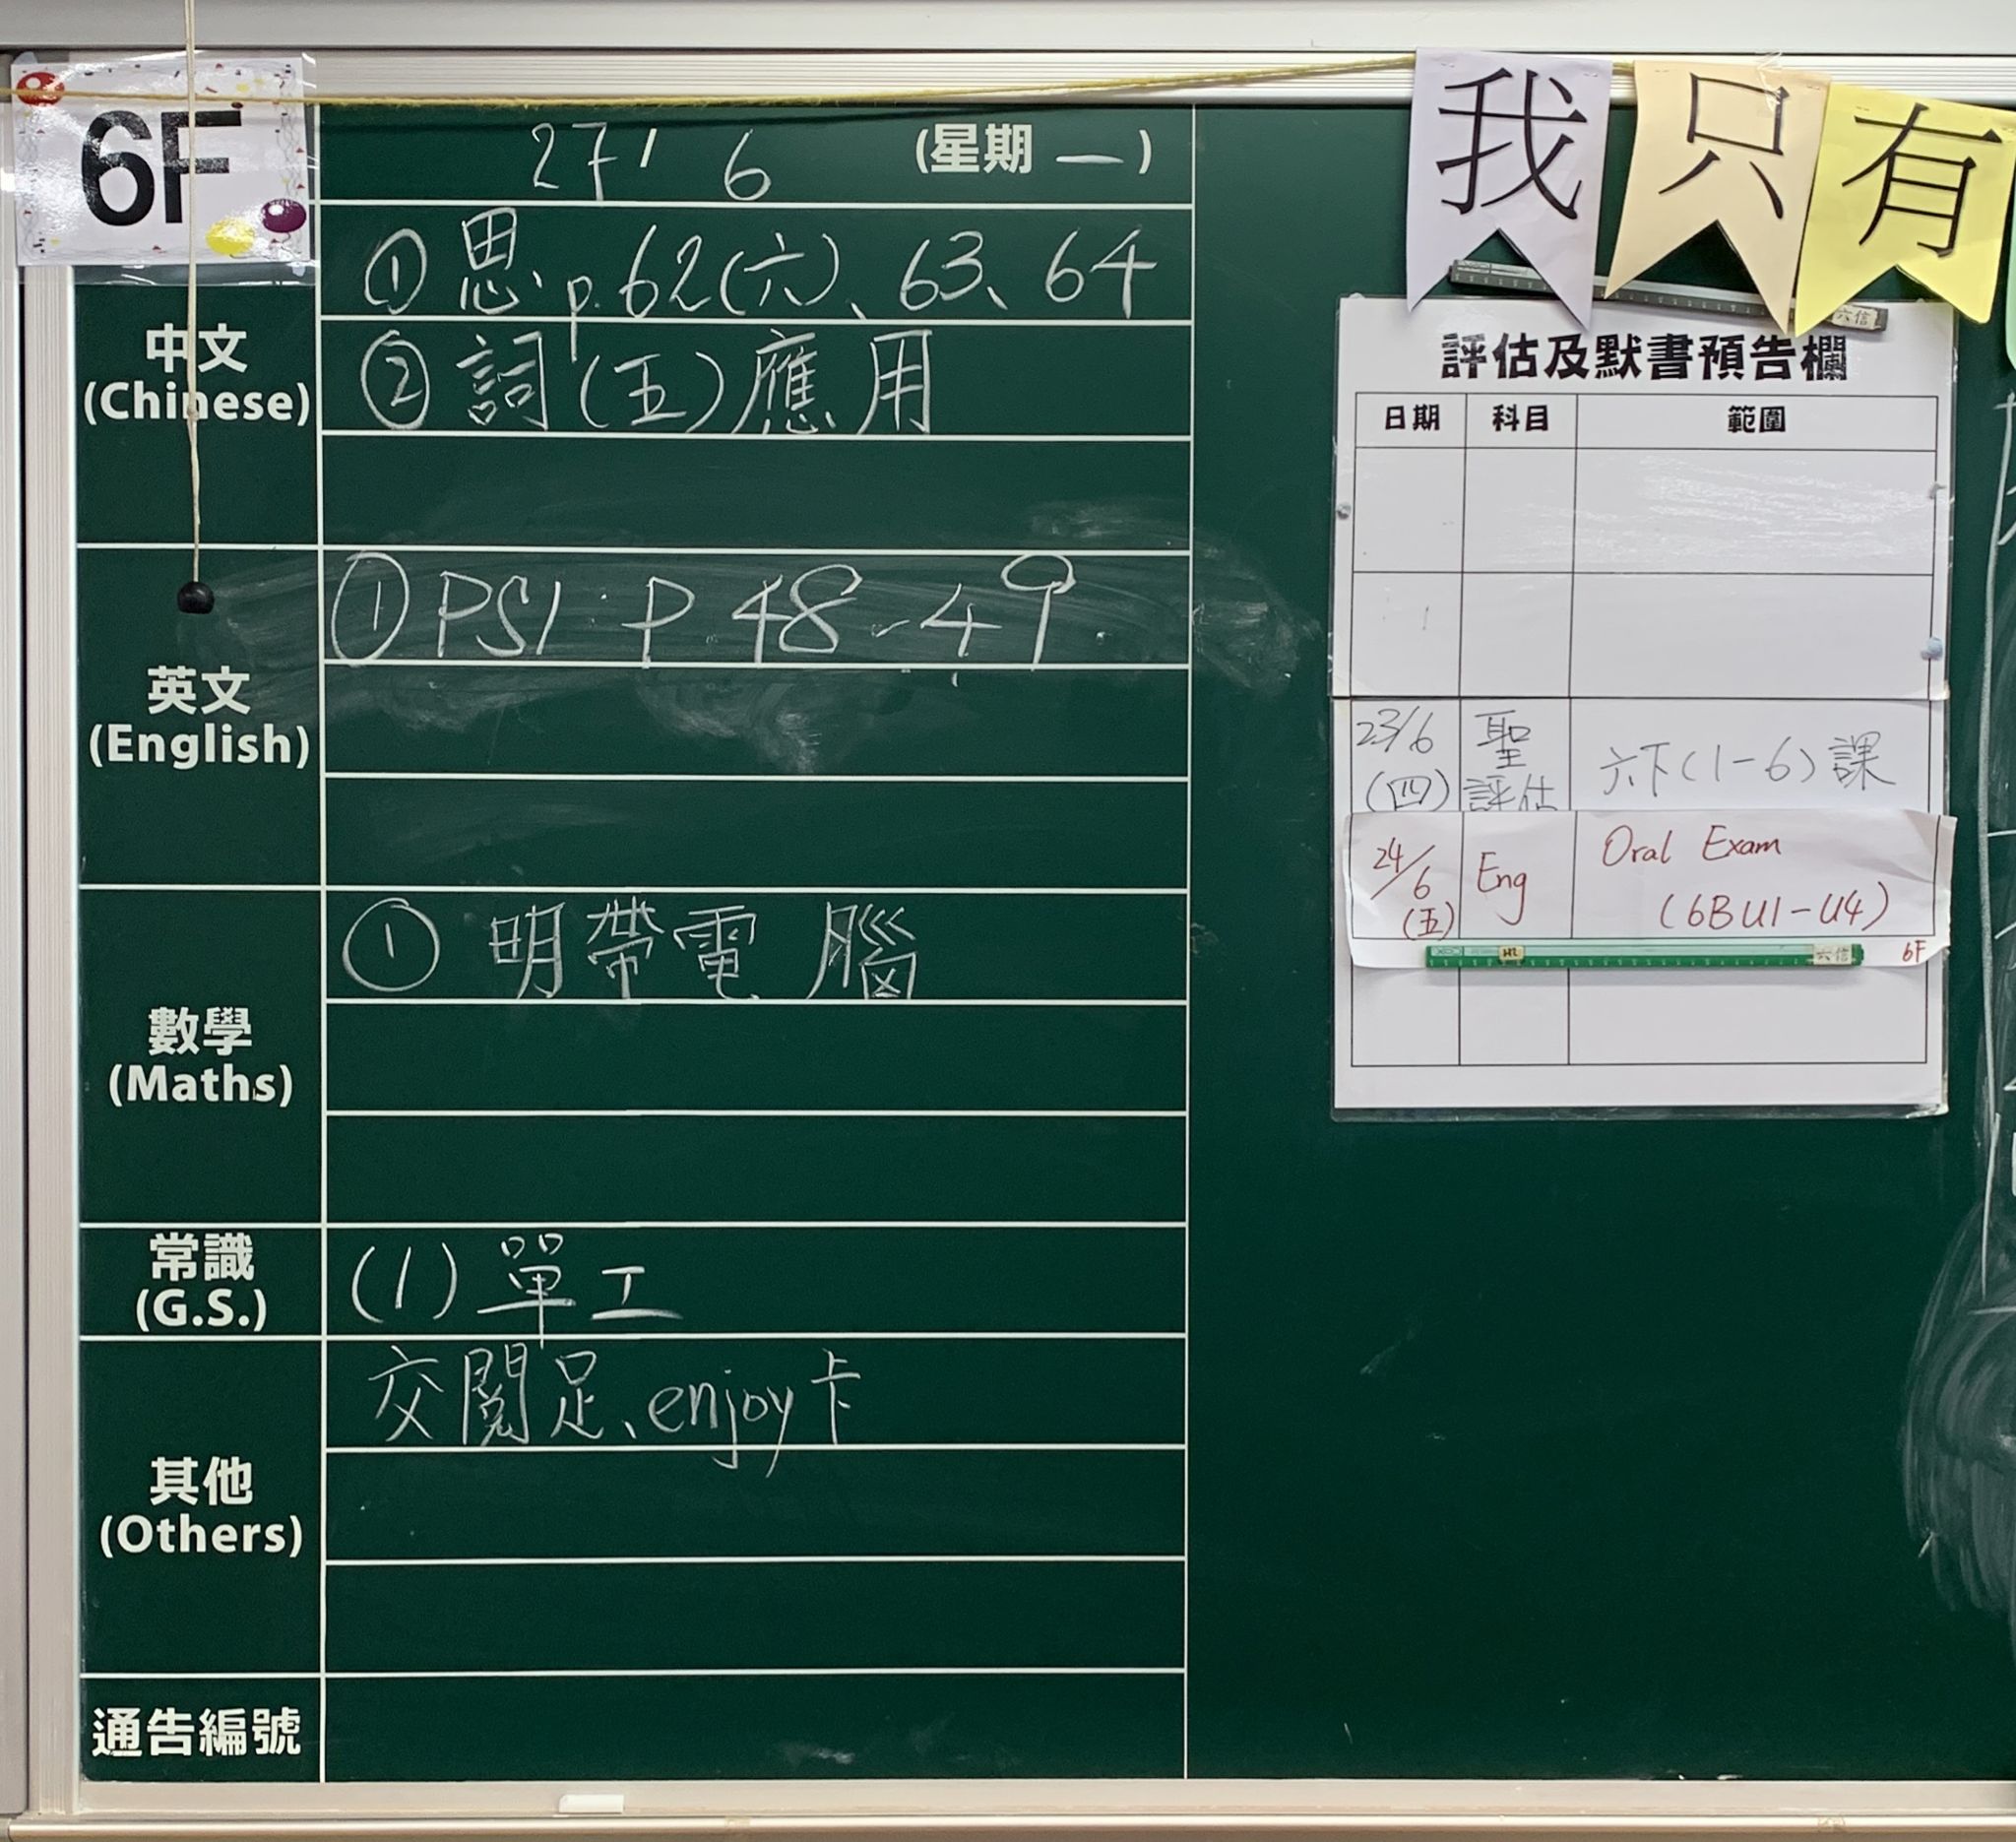 6F
27/6 (星期一)
中文
(Chinese)
① 思 p.62(六)、63、64
② 詞(五)應用
英文
(English)
① PS1 P.48-49
數學
(Maths)
① 明帶電腦
常識
(G.S.)
(1) 單工
其他
(Others)
交閱足、enjoy卡
通告編號
我只有
六信
評估及默書預告欄
日期 科目 範圍
23/6 (四) 聖評估 六下(1-6)課
24/6 (五) Eng Oral Exam (6B U1-U4)
六信
6F